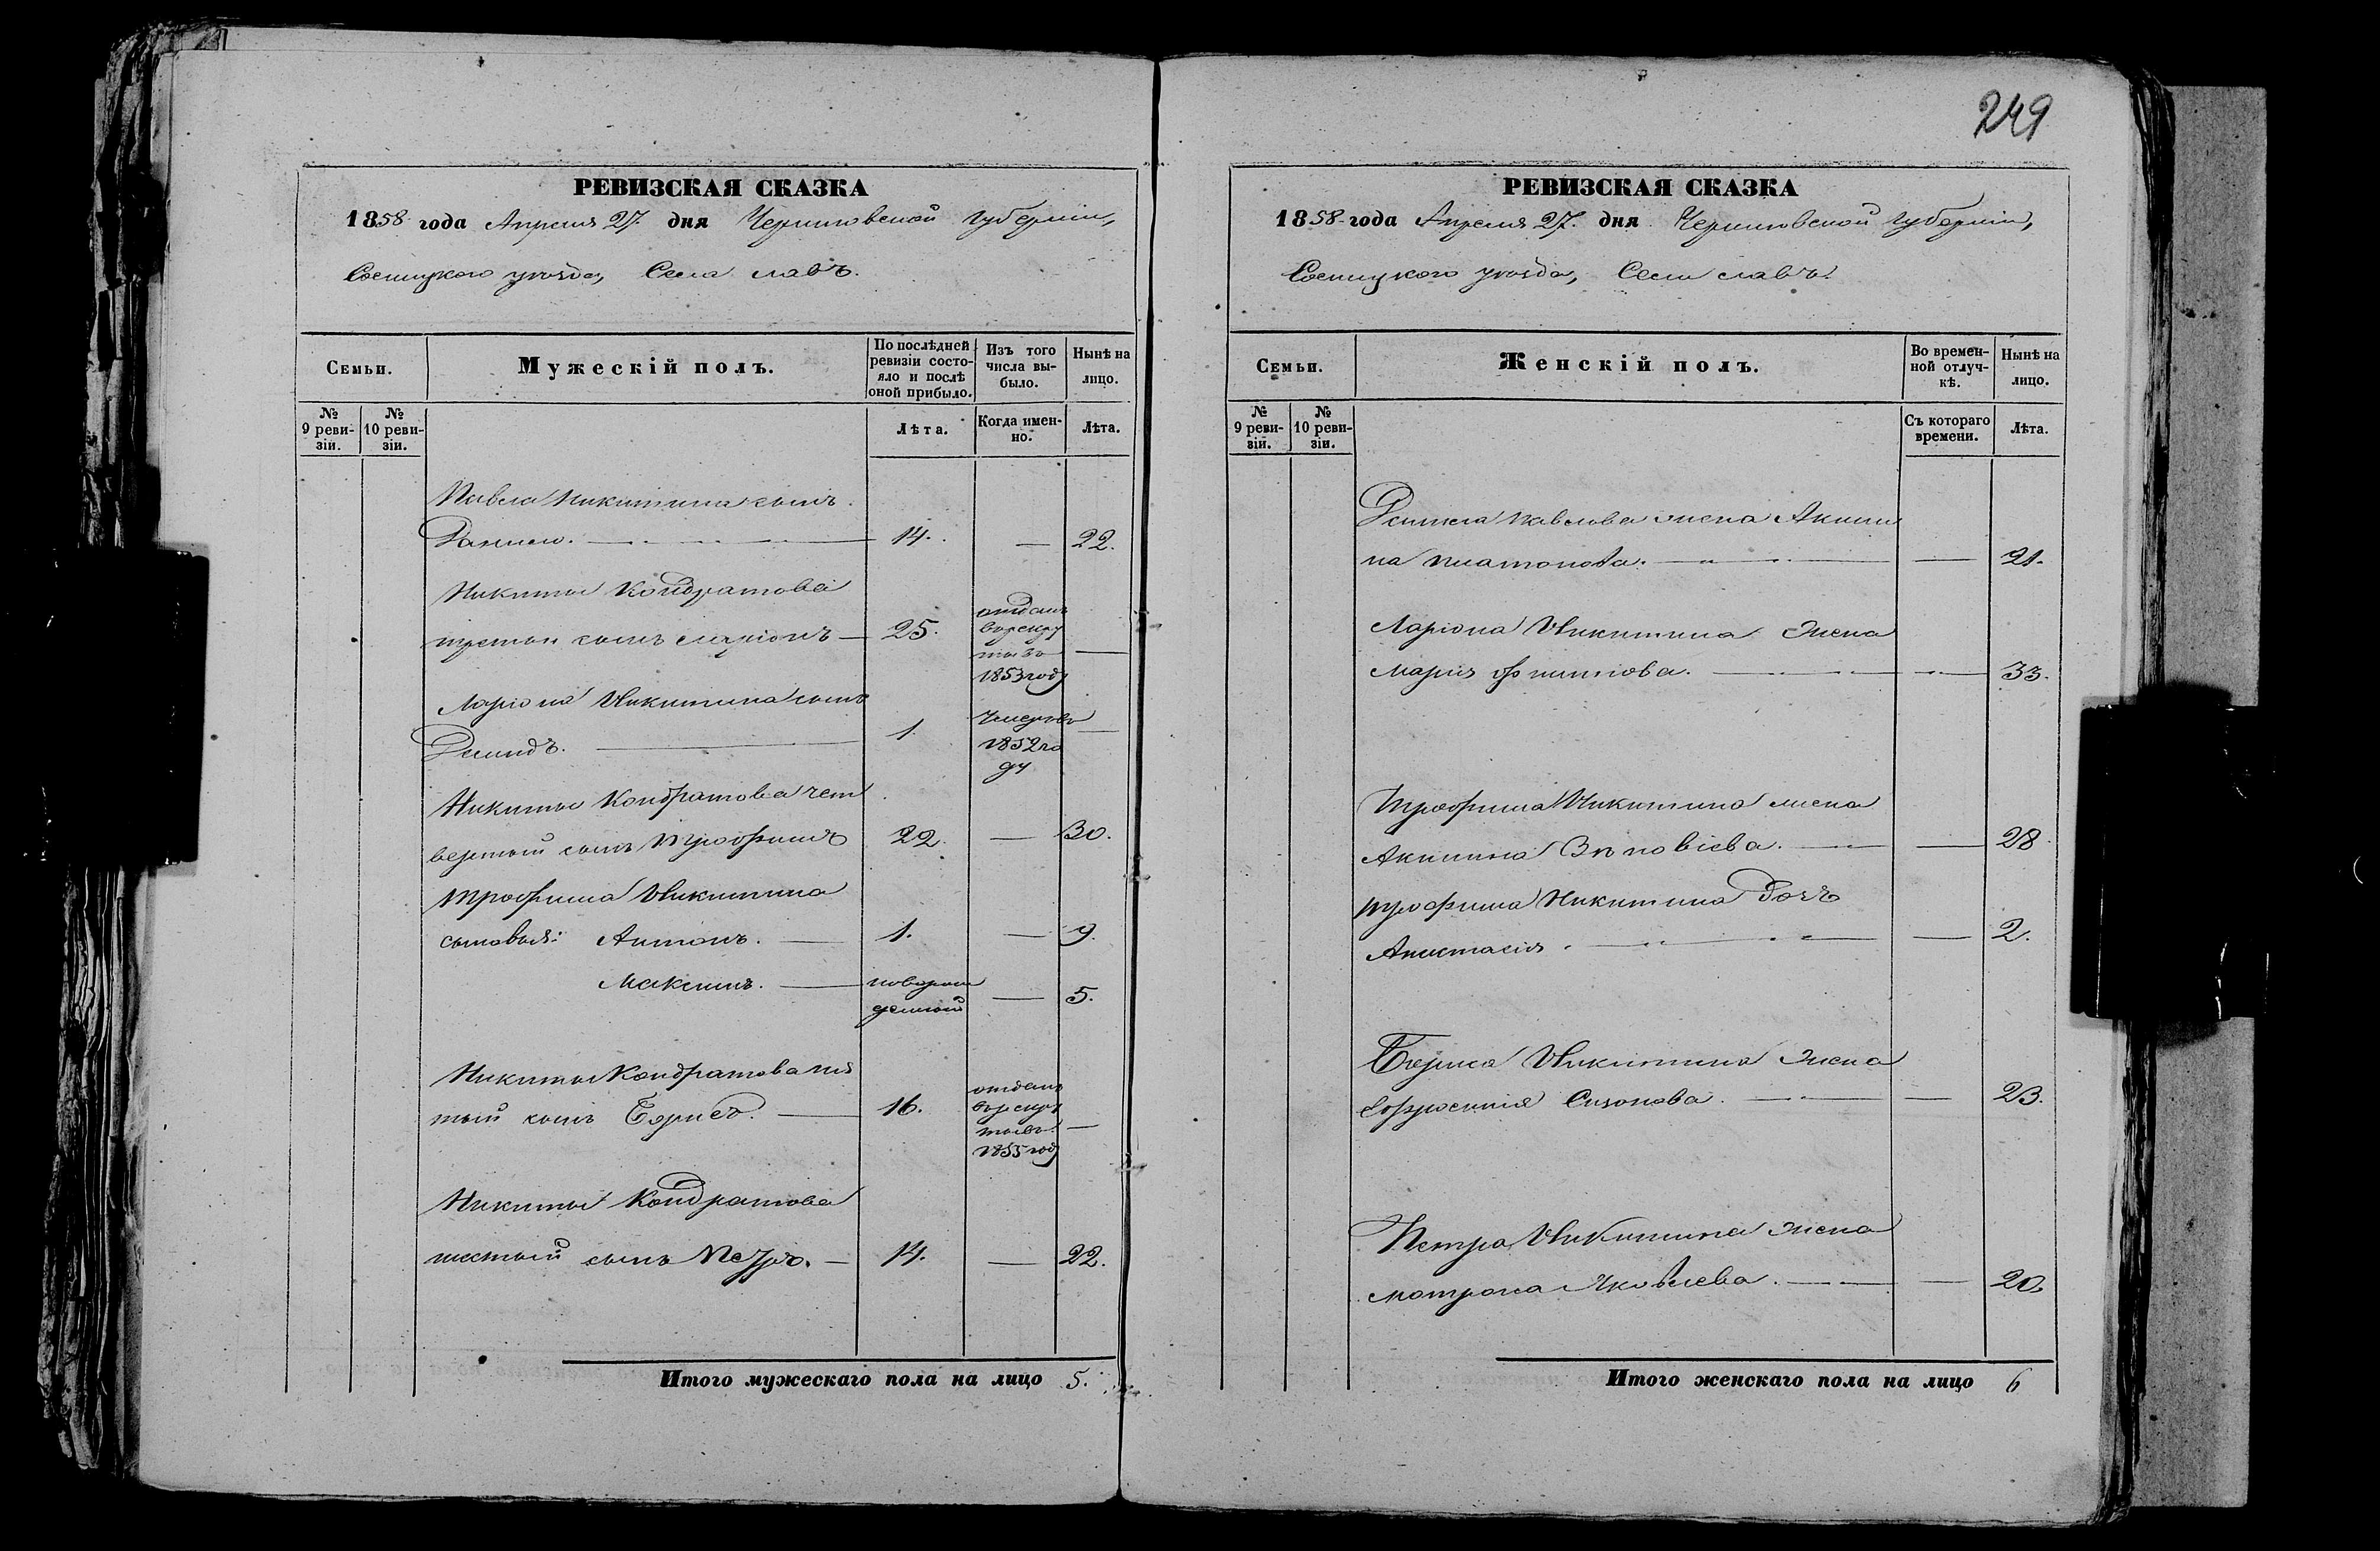 249
РЕВИЗСКАЯ СКАЗКА
1858 года Апреля 27. дня Черниговской губерніи,
Сосницкого уѣзда, Села
Семьи.
Мужескій полъ.
По послѣдней ревизіи состояло и послѣ оной прибыло.
Изъ того числа выбыло.
Нынѣ на лицо.
№ 9 ревизіи.
№ 10 ревизіи.
Лѣта.
Когда именно.
Лѣта.
Павла Никитина сынъ
14. — 22.
Никиты Кондратова
третій сынъ Ларіонъ — 25. отданъ
в рекру
ты въ —
1853 году
Ларіона Никитина сынъ
1. умеръ въ
1852 го
ду —
Никиты Кондратова чет
вертый сынъ Трофимъ 22. — 30.
Трофима Никитина
сыновья: Антонъ. — 1. — 9.
Максимъ. — новорож
денный — 5.
Никиты Кондратова пя
тый сынъ Борисъ. — 16. отданъ
в рекру
ты въ —
1855 году
Никиты Кондратова
шестый сынъ Петръ. — 14. — 22.
Итого мужескаго пола на лицо 5.
РЕВИЗСКАЯ СКАЗКА
1858 года Апреля 27. дня Черниговской губерніи,
Сосницкого уѣзда, Села
Семьи.
Женскій полъ.
Во временной отлучкѣ.
Нынѣ на лицо.
№ 9 ревизіи.
№ 10 ревизіи.
Съ котораго времени.
Лѣта.
Павлова жена Акили
на Платонова. — — 21.
Ларіона Никитина жена
Марія Филипова. — — 33.
Трофима Никитина жена
Акилина Зѣновіева. — — 28.
Трофима Никитина дочь
Анастасія. — — 2.
Бориса Никитина жена
Ефросинія Сизонова. — — 23.
Петра Никитина жена
Матрона Яковлева. — — 20.
Итого женскаго пола на лицо 6